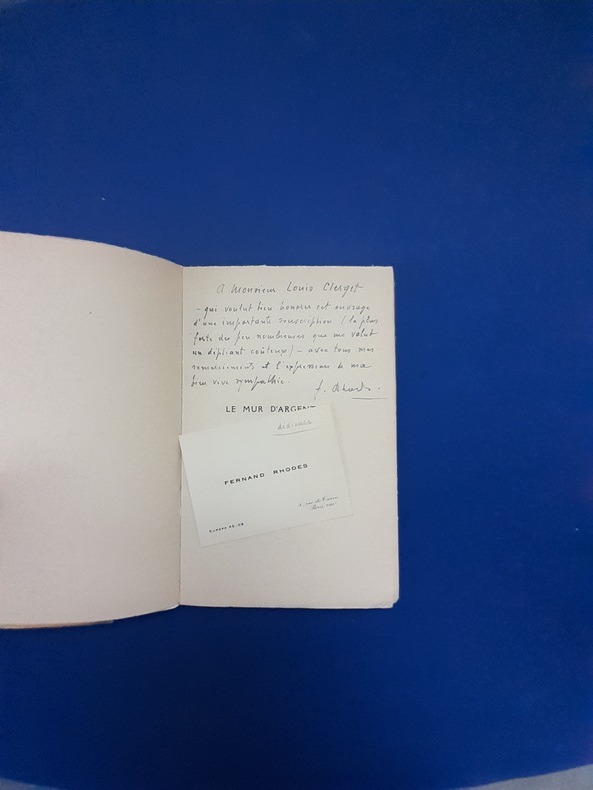 A Monsieur Louis Clerget
- qui voulut bien honorer cet ouvrage
d'une importante souscription (la plus
forte des peu nombreuses que me valut
un dépliant coûteux) - avec tous mes
remerciements et l'expression de ma
bien vive sympathie.
F. Rhodes.
LE MUR D'ARGENT
FERNAND RHODES
rue de
Paris
EUROPE 45-28